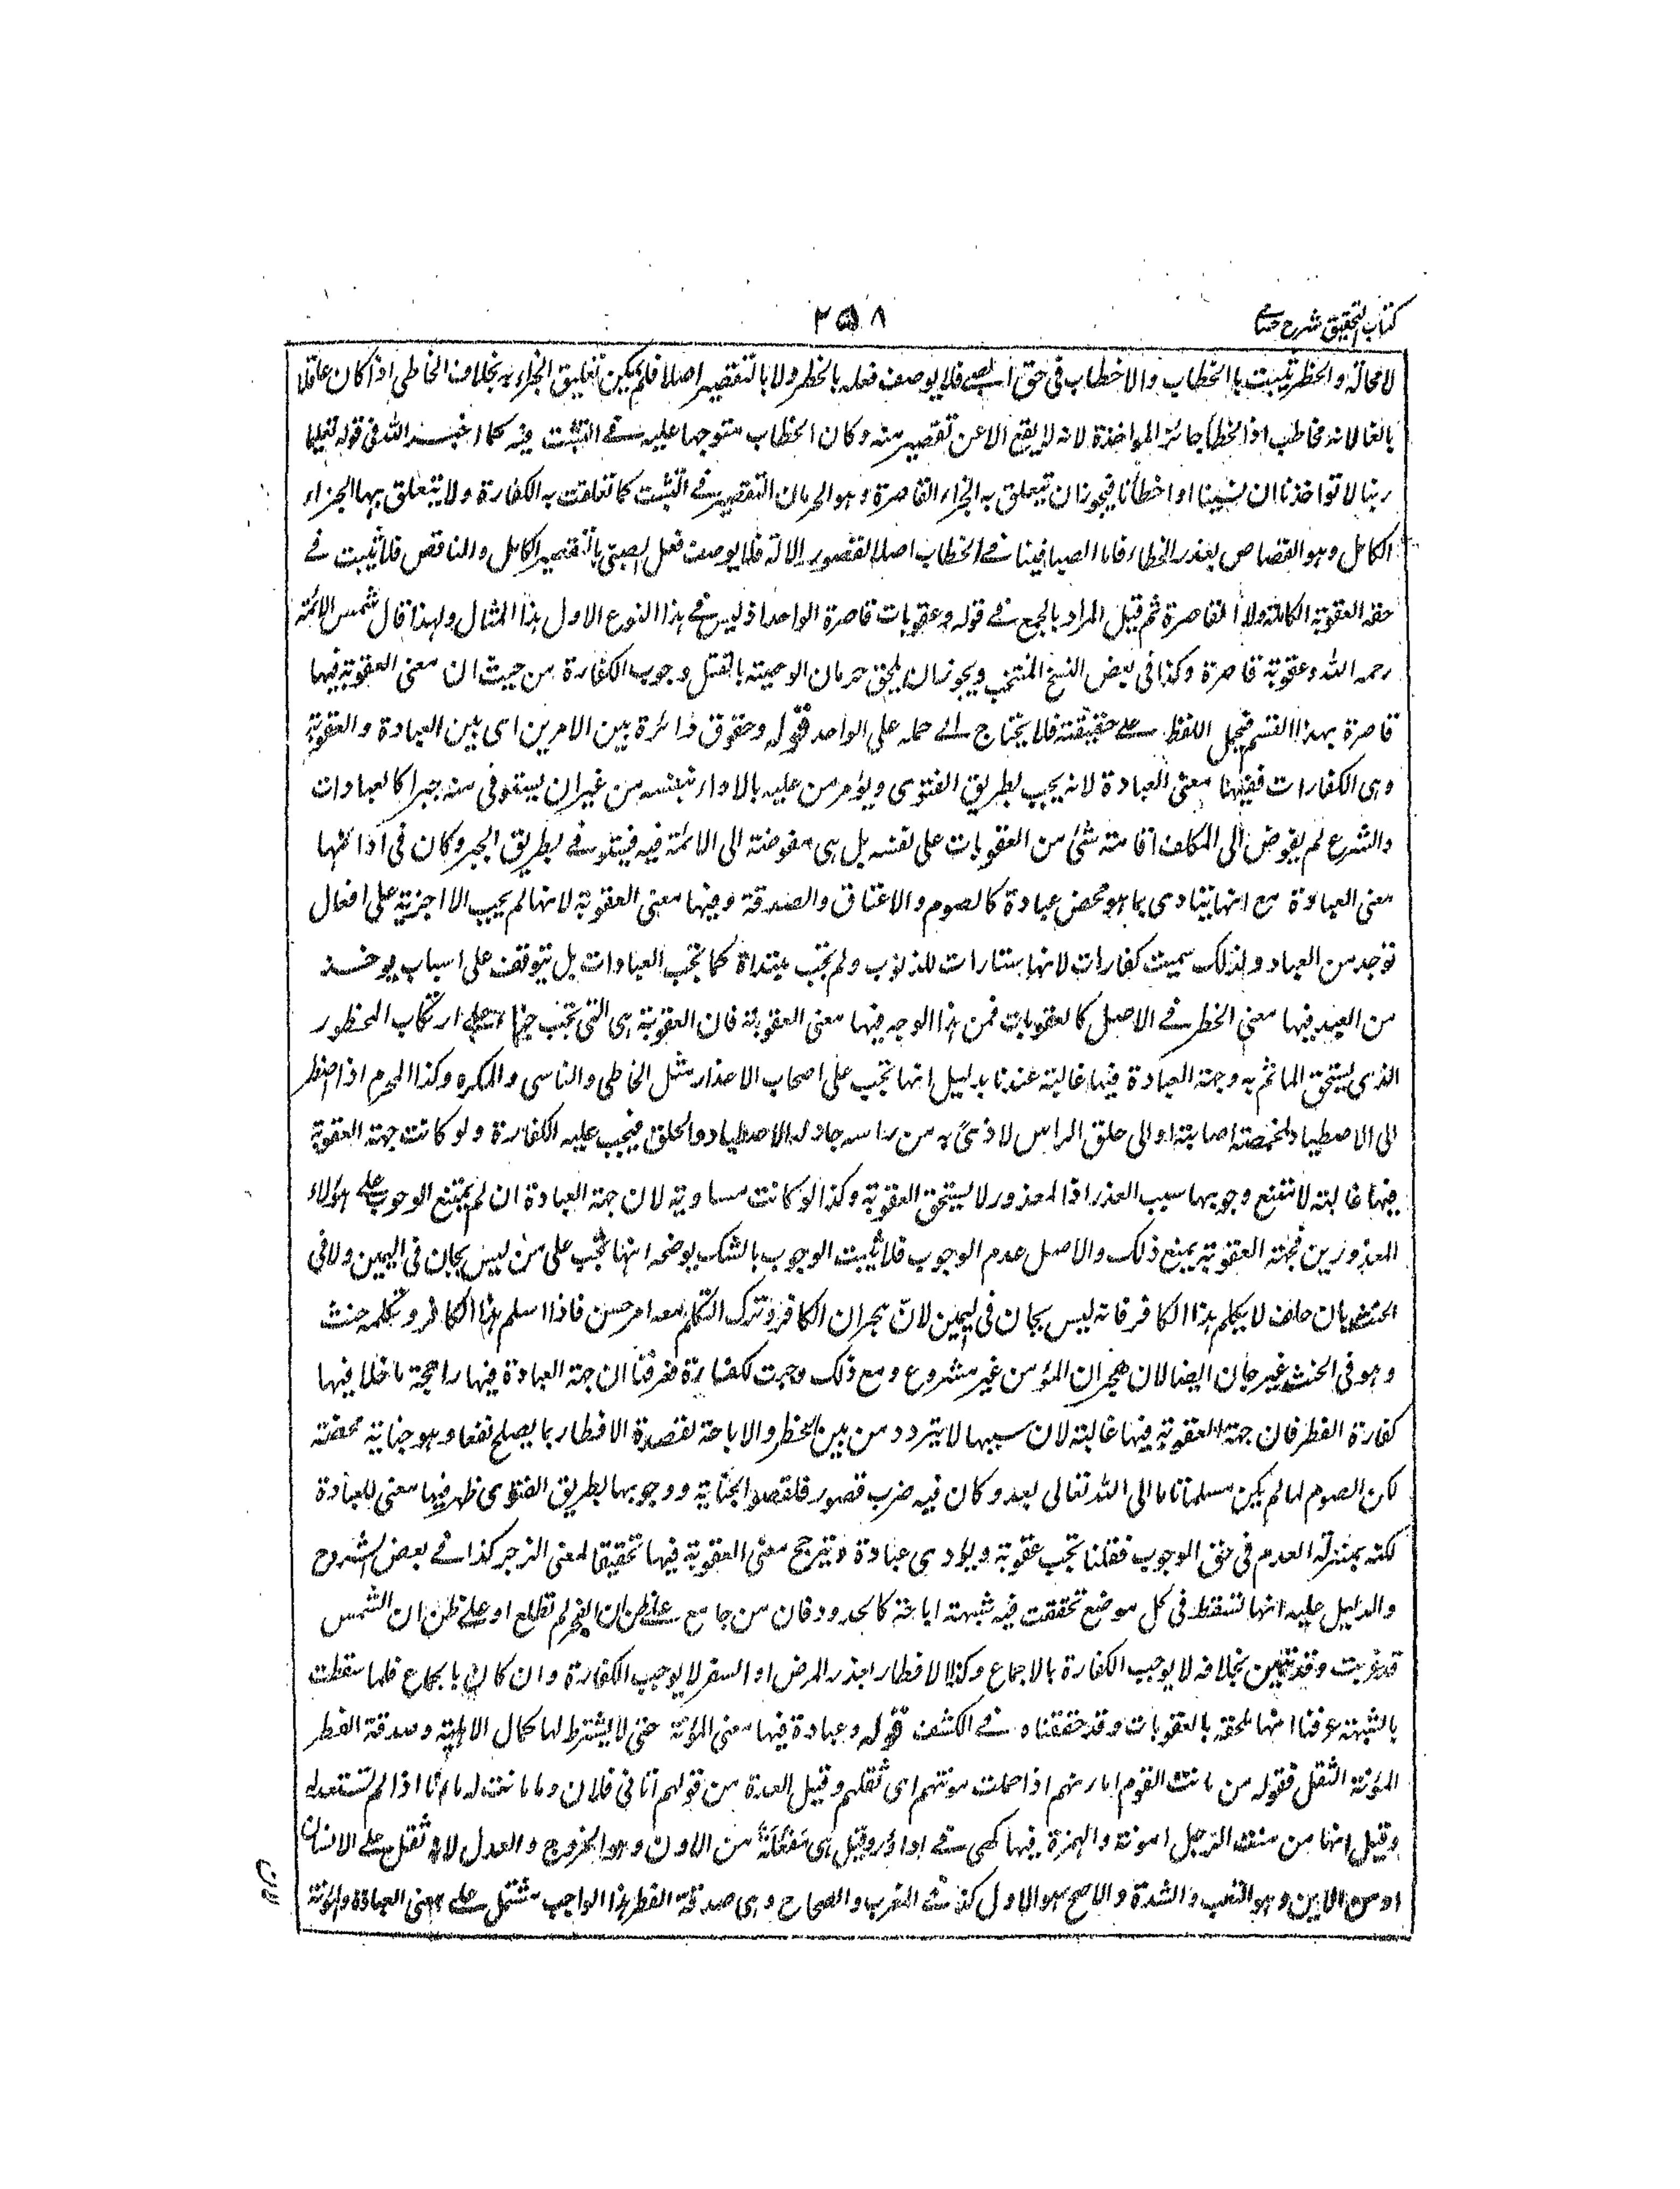 كتاب التحقيق شرح حسامى
٢٥٨
لا محالة والحظر يثبت بالخطاب ولا خطاب فى حق الصبى فلا يوصف فعله بالحظر ولا بالتقصير اصلا فلم يمكن تعليق الجزاء به بخلاف الخاطى اذا كان عاقلا
بالغا لانه مخاطب اذ الخطأ جائز المواخذة لانه لا يقع الا عن تقصير منه وكان الخطاب متوجها عليه فى التثبت فيه كما اخبر الله فى قوله تعليما
ربنا لا تواخذنا ان نسينا او اخطأنا فيجوز ان يتعلق به الجزاء القاصرة وهو الحرمان التقصير فى التثبت كما تعلقت به الكفارة ولا يتعلق بهما الجزاء
الكامل وهو القصاص بعذر الخطاء فاما الصبا فينافى الخطاب اصلا لقصور الالة فلا يوصف فعل الصبى بالتقصير الكامل والناقص فلا يثبت فى
حقه العقوبة الكاملة ولا القاصرة ثم قيل المراد بالجمع فى قوله وعقوبات قاصرة الواحد اذ ليس فى هذا النوع الاول هذا المثال ولهذا قال شمس الائمة
رحمه الله وعقوبة قاصرة وكذا فى بعض النسخ المنتخب ويجوز ان يلحق حرمان الوصية بالقتل وجوب الكفارة من حيث ان معنى العقوبة فيها
قاصرة بهذا القسم فيجمل اللفظ على حقيقته فلا يحتاج الى حمله على الواحد قوله وحقوق دائرة بين الامرين اى بين العبادة والعقوبة
وهى الكفارات ففيها معنى العبادة لانه يجب بطريق الفتوى ويؤمر من عليه بالاداء بنفسه من غير ان يستوفى منه جبرا كالعبادات
والشرع لم يفوض الى المكلف اقامة شئ من العقوبات على نفسه بل هى مفوضة الى الائمة فيه فيتوفى بطريق الجبر وكان فى ادائها
معنى العبادة مع انها يتادى بما هو محض عبادة كالصوم والاعتاق والصدقة وفيها معنى العقوبة لانها لم يجب الا اجزية على افعال
توجد من العباد ولذلك سميت كفارات لانها ستارات للذنوب ولم تجب مبتداة كما تجب العبادات بل تتوقف على اسباب يوخذ
من العبد فيها معنى الحظر فى الاصل كالعقوبات فمن هذا الوجه فيها معنى العقوبة فان العقوبة هى التى تجب جزاء على ارتكاب المحظور
الذى يستحق الماثم به وجهة العبادة فيها غالبة عندنا بدليل انها تجب على اصحاب الاعذار مثل الخاطى والناسى والمكره وكذا المحرم اذا اضطر
الى الاصطياد لمخمصة اصابته او الى حلق الراس لاذى به من راسه جاز له الاصطياد والحلق فيجب عليه الكفارة ولو كانت جهة العقوبة
فيها غالبة لامتنع وجوبها سبب العذر اذ المعذور لا يستحق العقوبة وكذا لو كانت مساوية لان جهة العبادة ان لم يمتنع الوجوب على هؤلاء
المعذورين فجهة العقوبة يمنع ذلك والاصل عدم الوجوب فلا يثبت الوجوب بالشك يوضحه انها تجب على من ليس بجان فى اليمين ولا فى
الحنث بان حلف لا يكلم هذا الكافر فانه ليس بجان فى اليمين لان هجران الكافر وترك التكلم معه امر حسن فاذا اسلم هذا الكافر وتكلمه حنث
وهو فى الحنث غير جان ايضا لان هجران المؤمن غير مشروع ومع ذلك وجبت الكفارة فعرفنا ان جهة العبادة فيها راجحة ما خلا فيها
كفارة الفطر فان جهة العقوبة فيها غالبة لان سببها لا يتردد من بين الحظر والاباحة لقصدة الافطار بما يصلح نفعا وهو جناية محضة
لكن الصوم لما لم يكن مسلما تاما الى الله تعالى بعد وكان فيه ضرب قصور فلقصور الجناية ووجوبها بطريق الفتوى ظهر فيها معنى للعبادة
لكنه بمنزلة العدم فى حق الوجوب فقلنا تجب عقوبة ويؤدى عبادة وترجح معنى العقوبة فيها تحقيقا لمعنى الزجر كذا فى بعض الشروح
والدليل عليه انها تسقط فى كل موضع تحققت فيه شبهة اباحة كالحدود فان من جامع على ظن ان الفجر لم تطلع او على ظن ان الشمس
قد غربت وقد تبين بخلافه لا يوجب الكفارة بالاجماع وكذا الافطار بعذر المرض او السفر لا يوجب الكفارة وان كان بالجماع فلما سقطت
بالشبهة عرفنا انها ملحقة بالعقوبات وقد حققناه فى الكشف قوله وعبادة فيها معنى المؤنة حتى لا يشترط لها كمال الاهلية وصدقة الفطر
المؤنة الثقل فقوله من مانت القوم امارنهم اذا احملت مونتهم اى ثقلهم وقيل العدة من قولهم اتانى فلان وما مانت له مانا اذا لم تستعد له
وقيل انها من منت الرجل امونة والهمزة فيها كهى فى ادؤر وقيل هى مفعلة من الاون وهو الخروج والعدل لانه ثقل على الانسان
او من الاين وهو التعب والشدة والاصح هو الاول كذا فى المغرب والصحاح وهى صدقة الفطر هذا الواجب مشتمل على معنى العبادة والمؤنة
لان